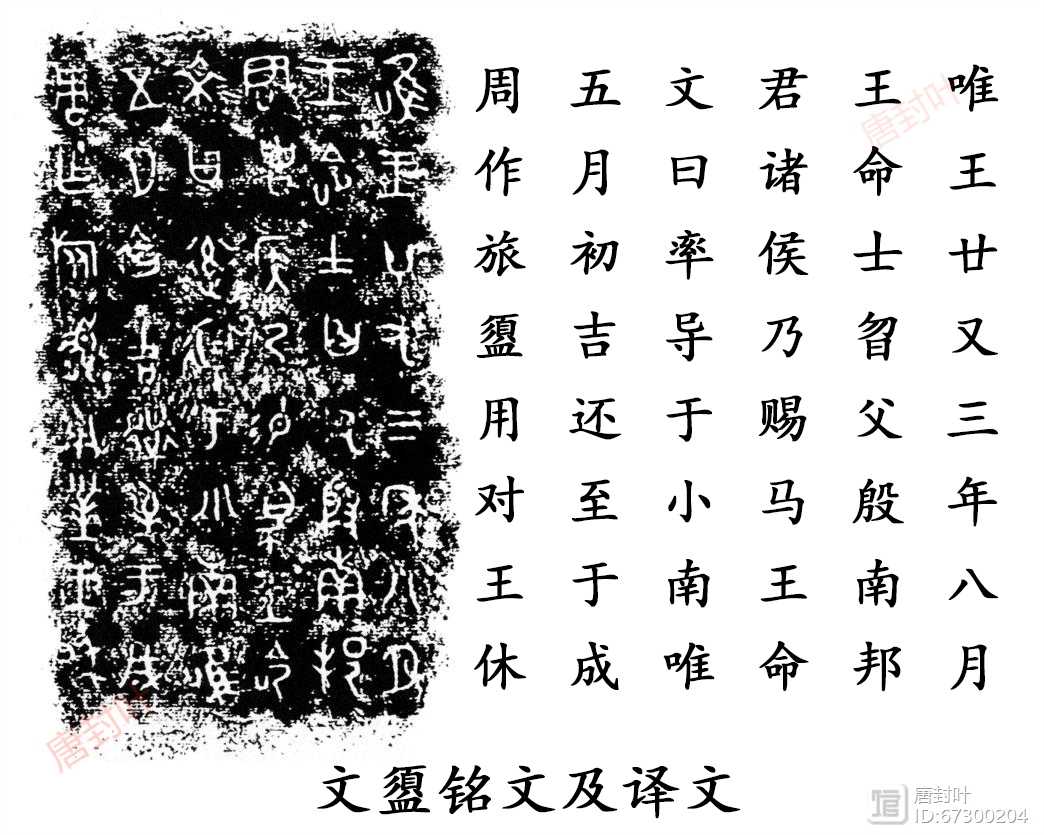 唯王廿又三年八月
王命士曶父殷南邦
君诸侯乃赐马王命
文曰率导于小南唯
五月初吉还至于成
周作旅盨用对王休
文盨铭文及译文
唐封叶
唐封叶
唐封叶
ID:67300204